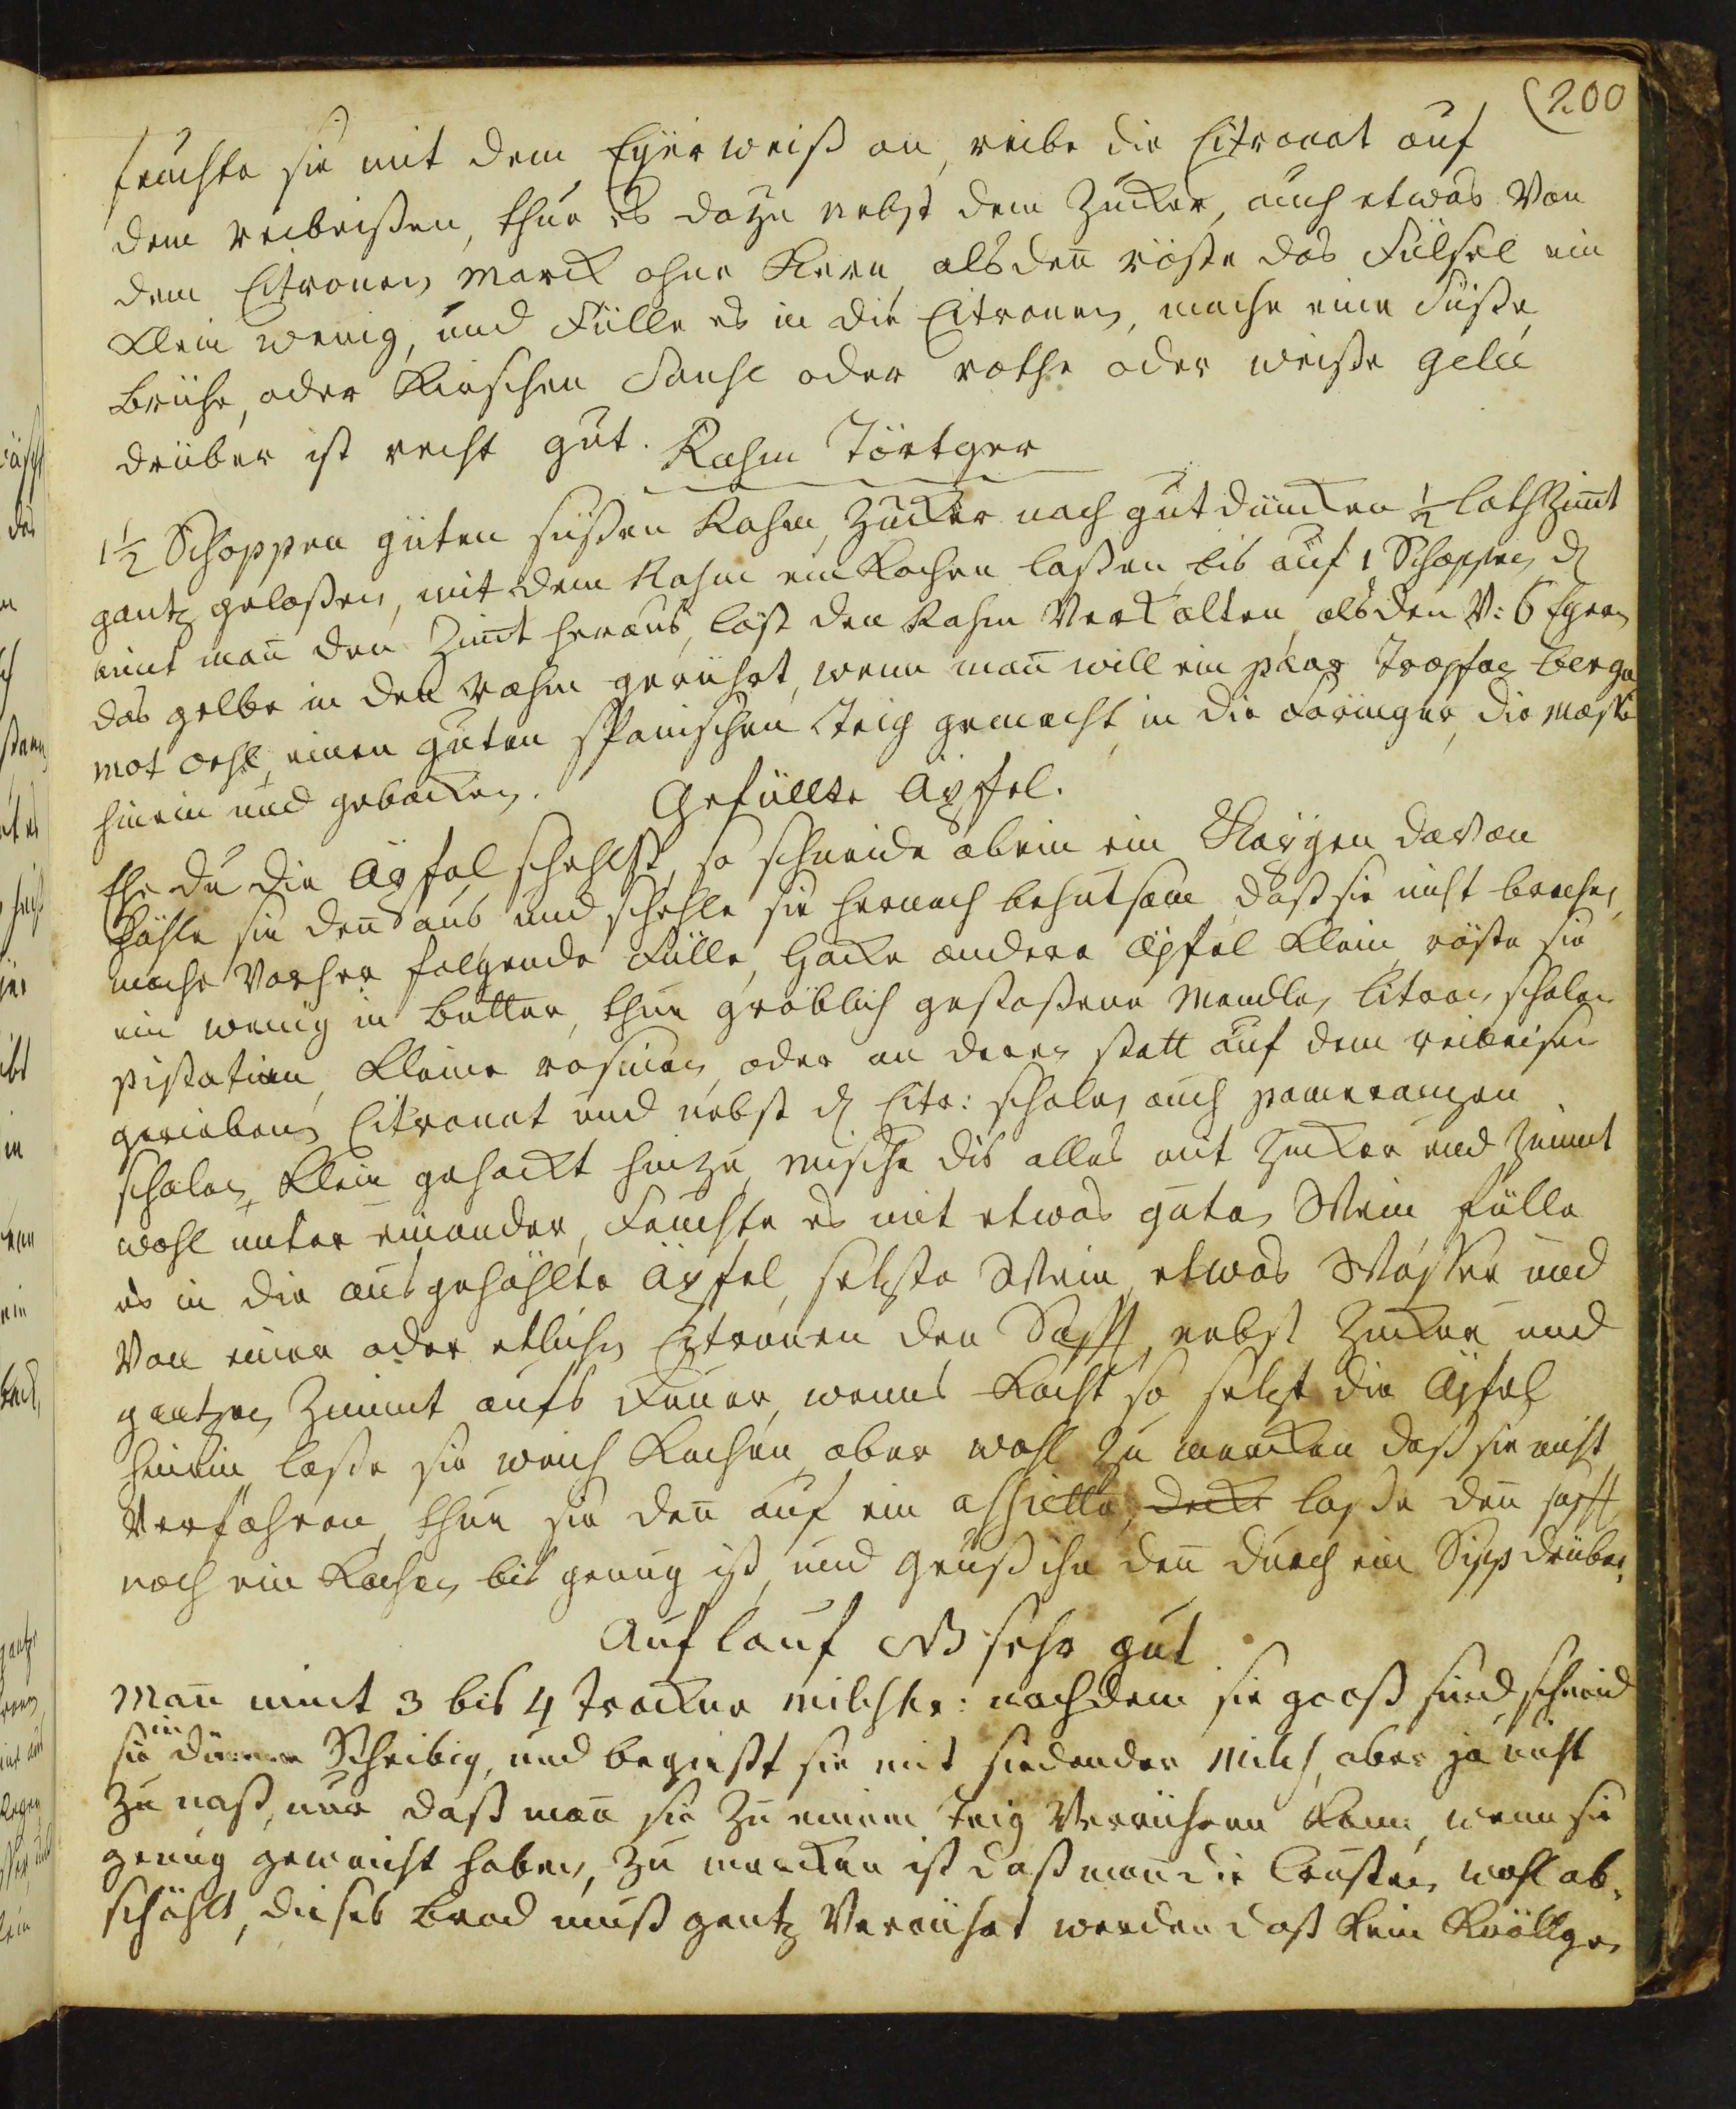 200
feuchte sie mit dem Eÿerweiß an, reibe die Citronat auf
dem reibeißen, thue es dazu nebst dem Zucker, auch etwas von
dem Citronen marck ohne Kern, alsdeñ röste das Fülsel ein
klein wenig, und Fülle es in die Citronen, mache eine süße
brühe, oder Kirschen Sauße oder rothe oder weiße gelee
drüber ist recht gut.
Rahm Törtger
1½ Schoppen guten süßen Rahm, Zucker nach gutdüncken ½ loth Zimt
gantz gelaßen, mit dem Rahm einkochen laßen, bis auf 1 Schoppen, dz
nimt mañ den Zimt heraus, läst den Rahm verkalten, alsden v: 6 Eyern
das gelbe in den rahm gerührt, wenn mañ will ein paar tropfen berga
mot oehl, einen guten spanischen Teig gemacht, in die Förmger, die maße
hinein und gebacken.
Gefüllte Äpfel.
Ehe du die Äpfel schehlst, so schneide oben ein Käpgen davon
höhle sie deñ aus und schehle sie hernach behutsam, daß sie nicht brechen,
mache vorher folgende Fülle, hacke andere Äpfel klein, röste sie
ein wenig in butter, thue gröblich gestoßene Mandlen, Citronschalen
pistatien, kleine rosinen, oder an deren statt auf dem reibeisen
gerieben Citronat und nebst dz Citr: schalen auch pomerantzen
schalen, klein gehackt hinzu, mische dis alles mit Zucker und Zimmt
wohl unter einander, feuchte es mit etwas guten Wein fülle
es in die ausgehöhlte Äpfel, setzste Wein, etwas Waßer und
von einer oder etlichen Citronen den Safft, nebst Zucker und
gantzen Zimmt aufs Feuer, wenns kocht so setzst die Äpfel
hinein laße sie weich kochen, aber wohl zu mercken daß sie nicht
verfahren, thue sie deñ auf ein assiette, deckt laße deñ safft
noch ein kochen bis genug ist, und gieuß ihn deñ durch ein Sipp drüber,
Auflauf NB sehr gut
Mañ nimt 3 bis 4 trockne milchbr: nachdem sie groß sind, schneid
sie in dünne Scheibig, und begießt sie mit siedender Milch, aber ja nicht
zu naß, nur daß mañ sie zu einem teig verrühren kann, wenn sie
genug geweicht haben, zu mercken ist daß mañ die Crusten wohl ab-
schählt, dieses brod muß gantz verrührt werden daß kein Knöllgen